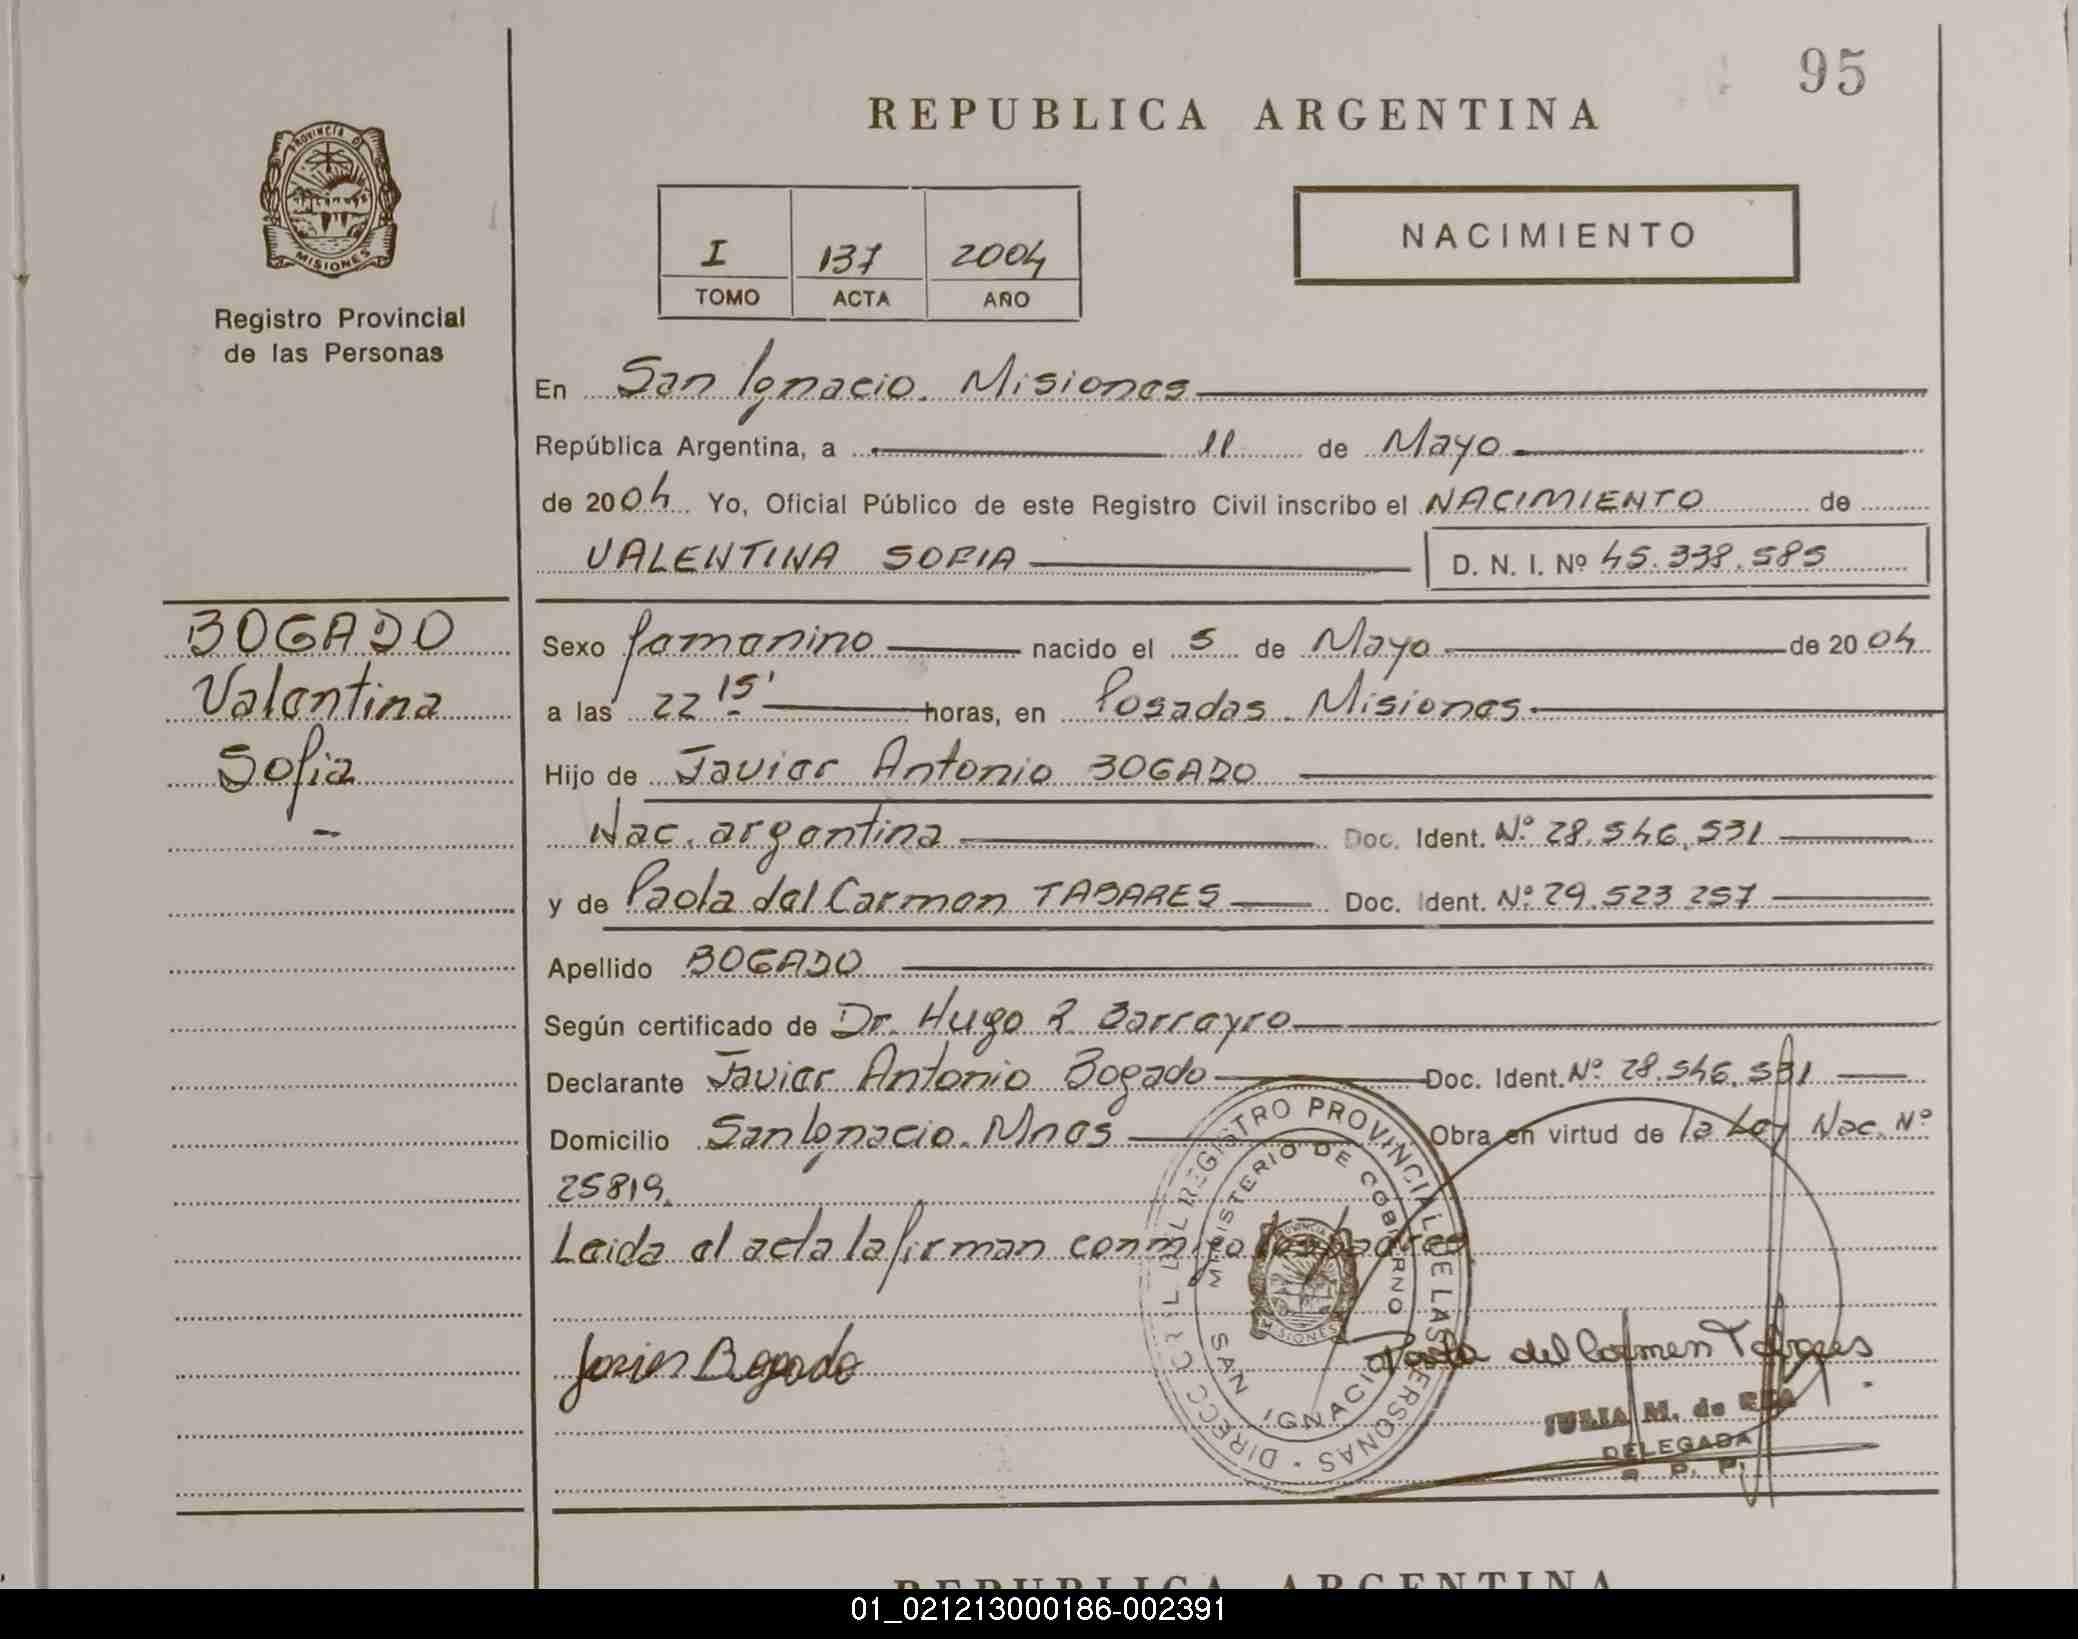 95
REPUBLICA ARGENTINA
PROVINCIA DE
MISIONES
Registro Provincial
de las Personas
I 137 2004
TOMO ACTA AÑO
NACIMIENTO
En San Ignacio. Misiones
República Argentina, a 11 de Mayo
de 2004 Yo, Oficial Público de este Registro Civil inscribo el NACIMIENTO de
VALENTINA SOFIA D. N. I. Nº 45.338.585
BOGADO
Valentina
Sofia
Sexo femenino nacido el 5 de Mayo de 2004
a las 22 15' horas, en Posadas. Misiones
Hijo de Javier Antonio BOGADO
Nac. argentina Doc. Ident. Nº 28.546.531
y de Paola del Carmen TABARES Doc. Ident. Nº 29.523.257
Apellido BOGADO
Según certificado de Dr. Hugo R Barreyro
Declarante Javier Antonio Bogado Doc. Ident. Nº 28.546.531
Domicilio San Ignacio. Mnes Obra en virtud de la Ley Nac. Nº
25819.
Leida el acta la firman conmigo los padres
Javier Bogado
Paola del Carmen Tabares
DIRECC GRL DEL REGISTRO PROVINCIAL DE LAS PERSONAS
MINISTERIO DE GOBIERNO
SAN IGNACIO
PROVINCIA
MISIONES
JULIA M. de
DELEGADA
R. P. P.
REPUBLICA ARGENTINA
01_021213000186-002391